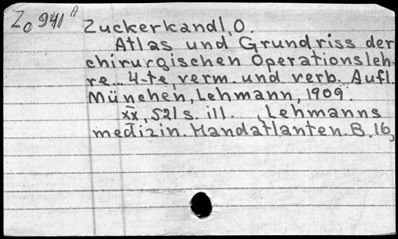 Zo 941 A
Zuckerkandl, O.
Atlas und Grundriss der
chirurgischen Operationsleh-
re. 4-te, verm. und verb. Aufl.
München, Lehmann, 1909.
xx, 521 s. ill. Lehmanns
medizin. Handatlanten. B. 16,